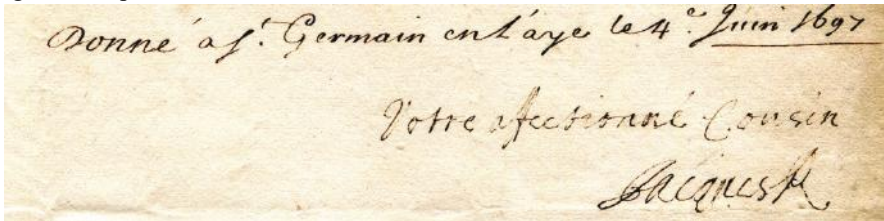 Donné a St. Germain en Laye le 4e. Juin 1697
Votre afectionné Cousin
Jacques R